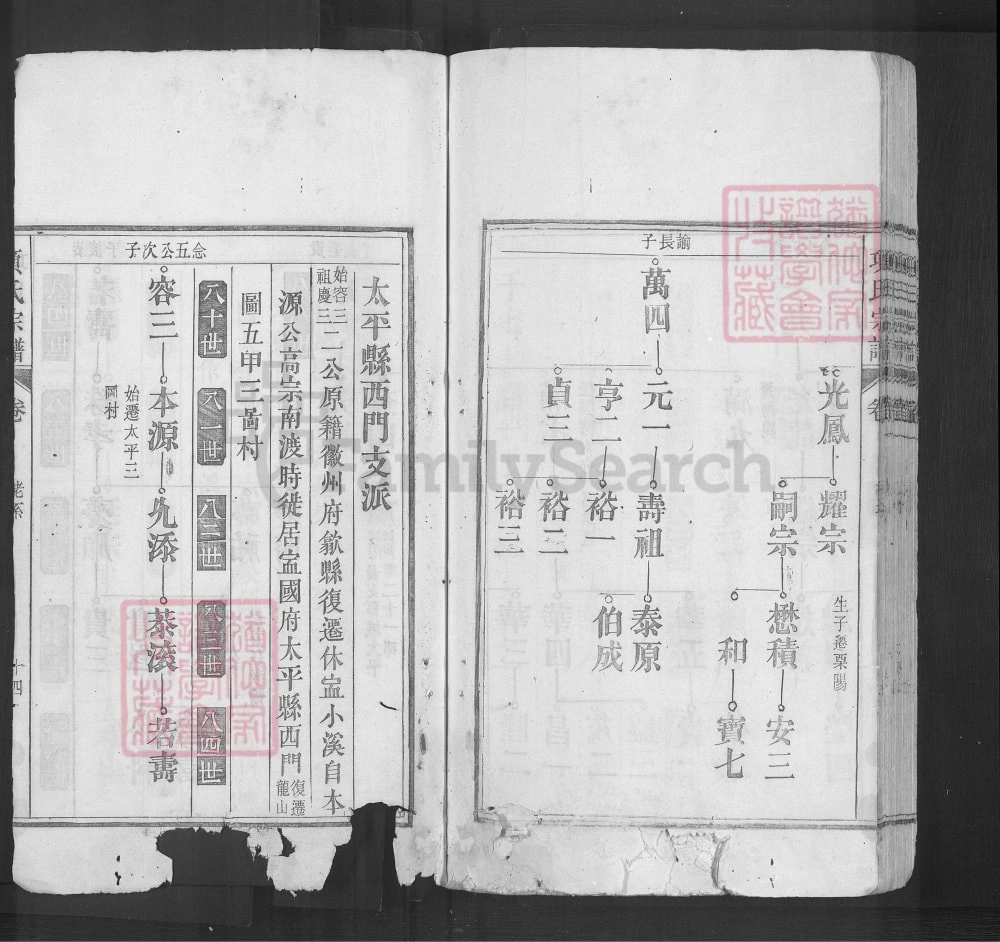 光鳳
耀宗
生子遷栗陽
嗣宗
懋積
安三
和
寶七
諭長子
萬四
元一
壽祖
泰原
亨二
裕一
伯成
貞三
裕二
裕三
太平縣西門支派
始容三
祖慶三
二公原籍徽州府歙縣復遷休寍小溪自本
源公高宗南渡時徙居寍國府太平縣西門
復遷
龍山
圖五甲三啚村
八十世
八一世
八二世
八三世
八四世
念五公次子
容三
本源
始遷太平三
啚村
九添
恭滾
若壽
項氏宗譜
卷
十四
FamilySearch